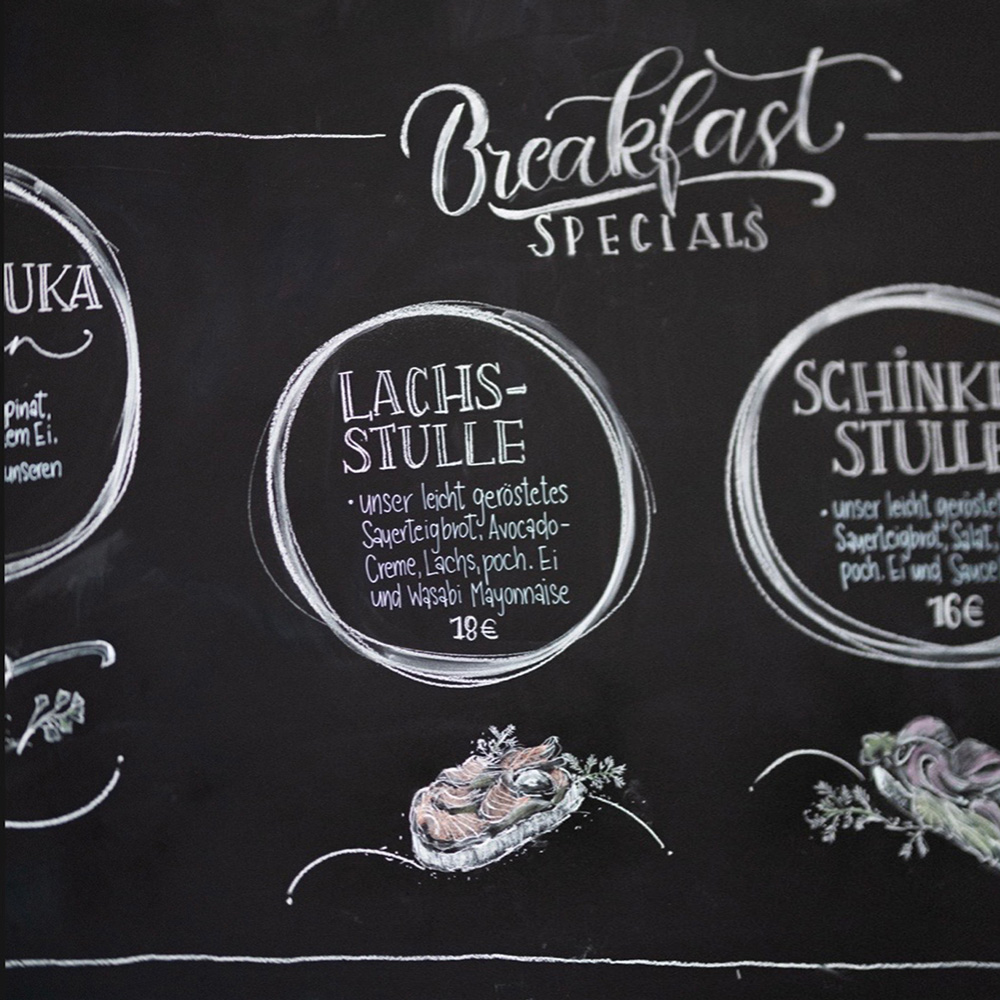 Breakfast
SPECIALS
UKA
pinat,
em Ei.
unseren
LACHS-
STULLE
· unser leicht geröstetes
Sauerteigbrot, Avocado-
Creme, Lachs, poch. Ei
und Wasabi Mayonnaise
18€
SCHINKE
STULLE
· unser leicht geröste
Sauerteigbrot, Salat,
poch. Ei und Sauce
16€